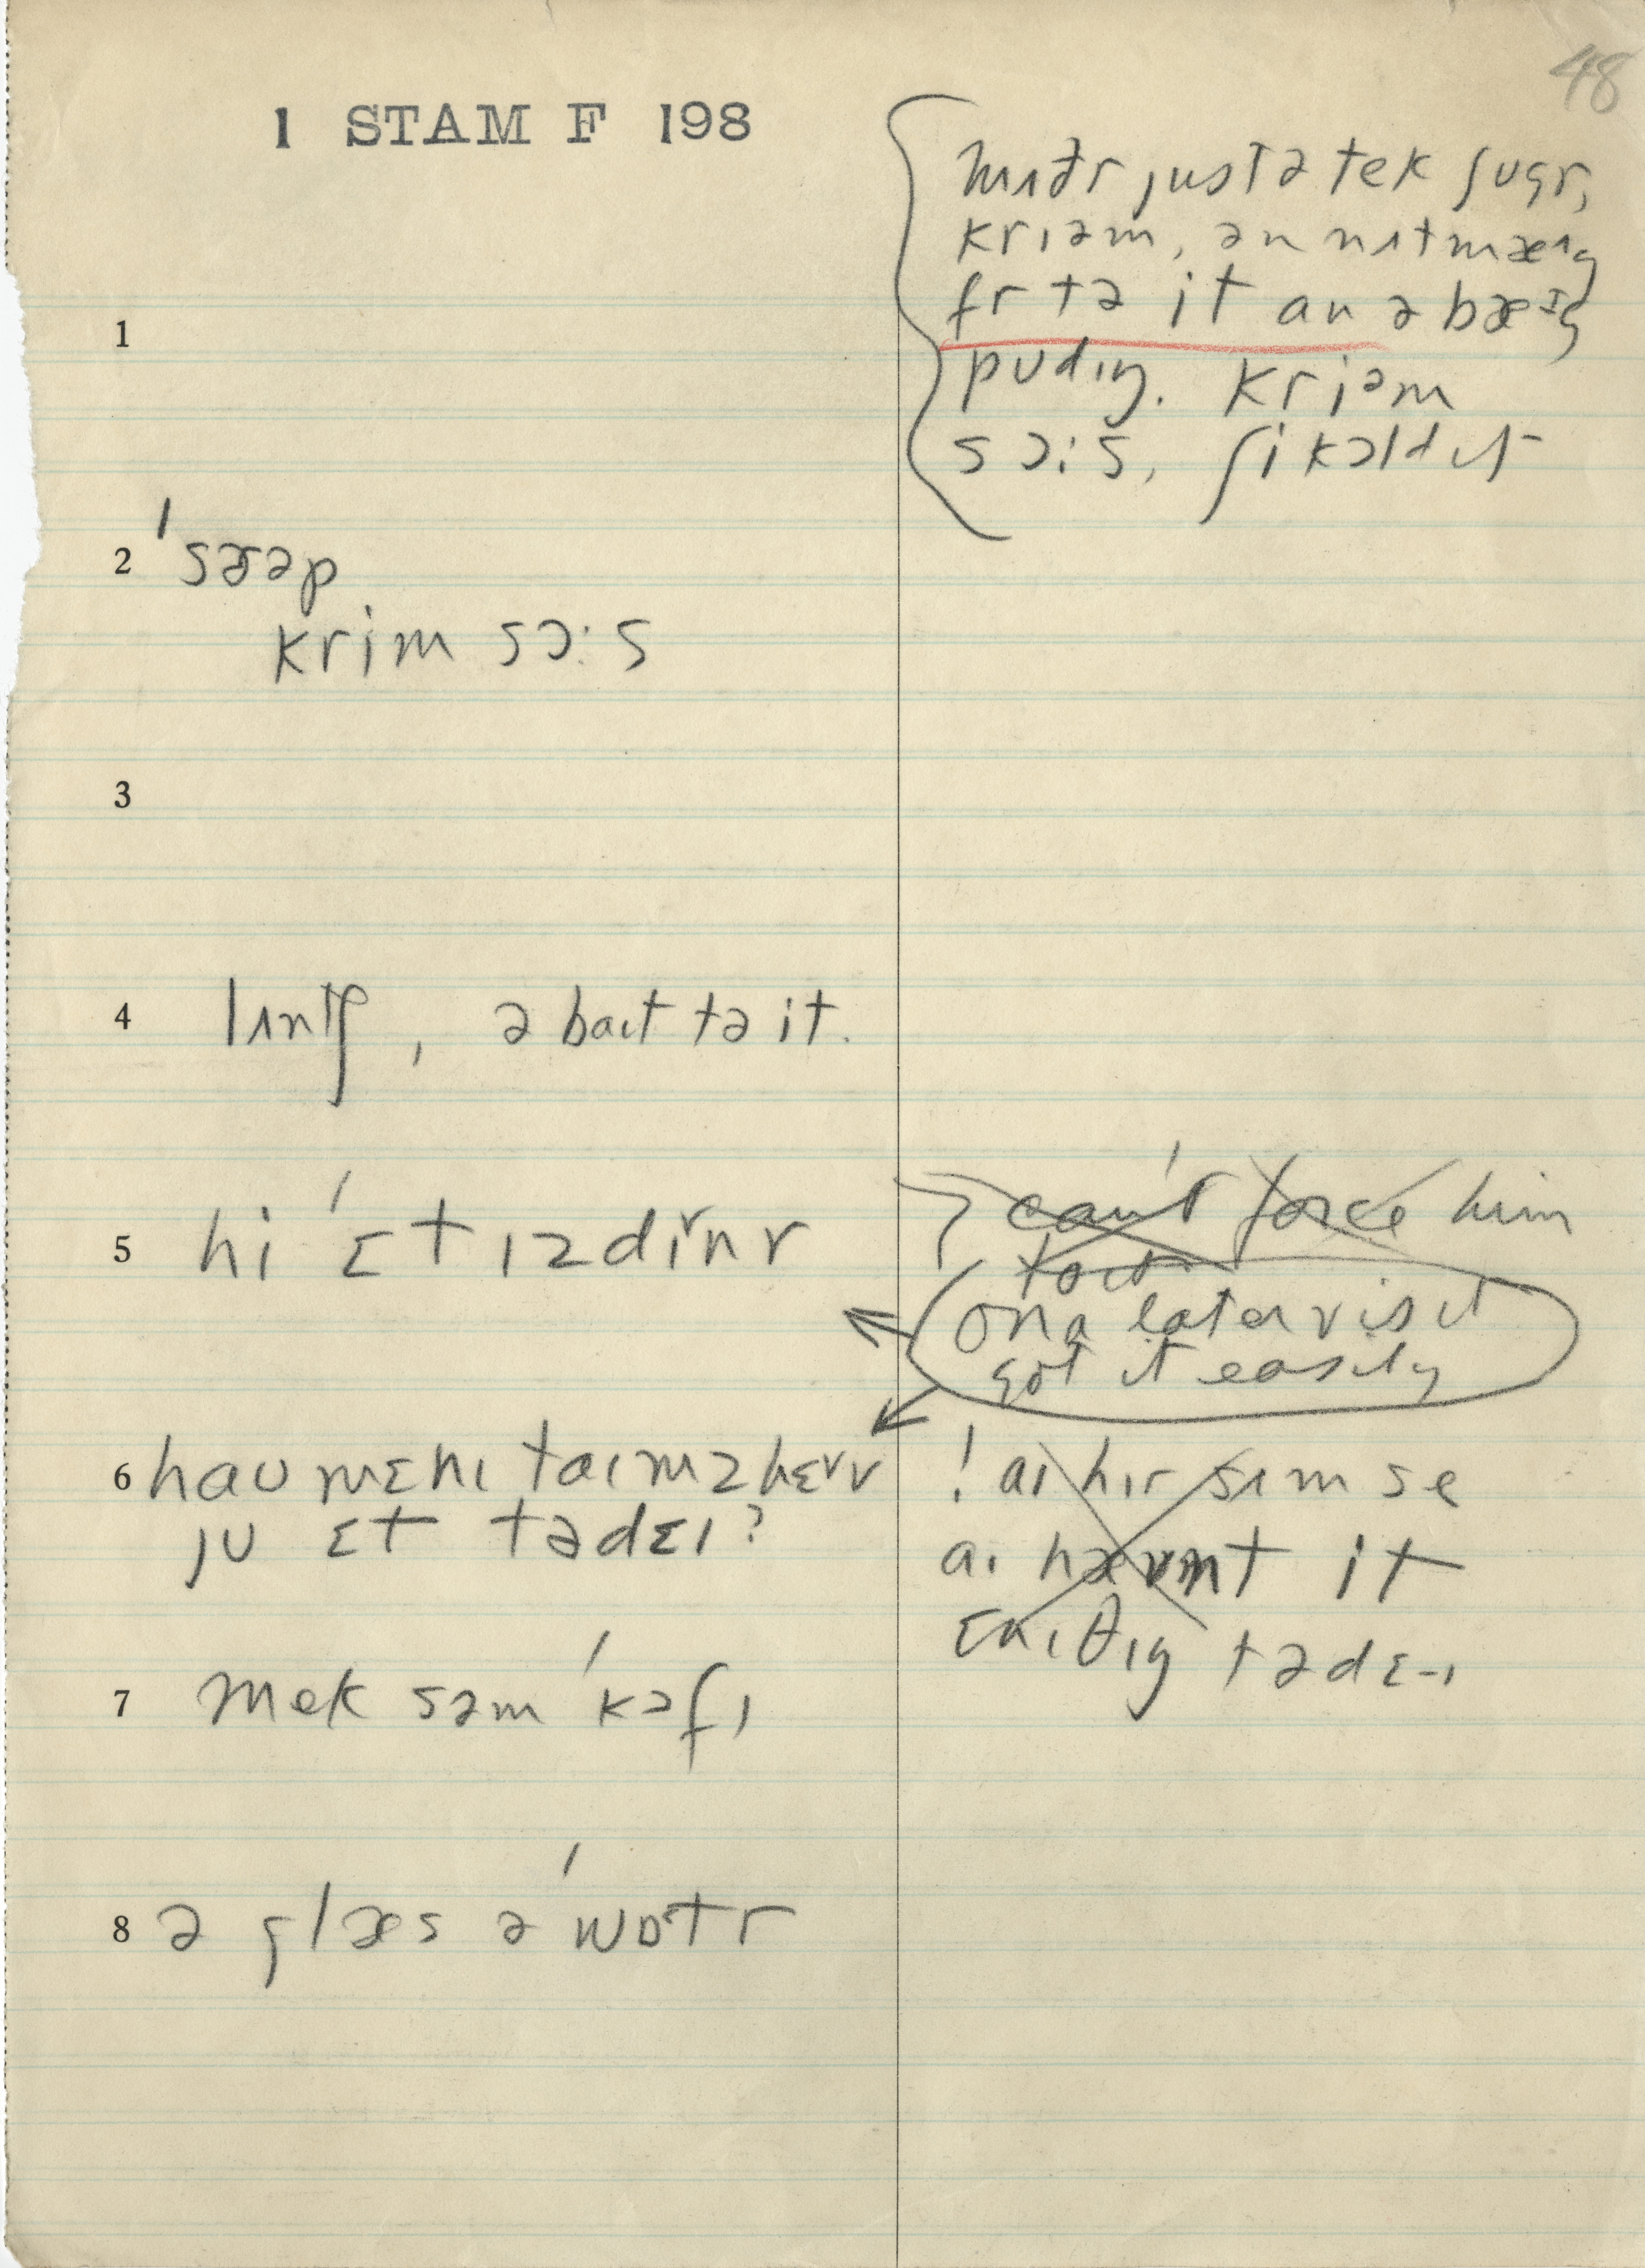 48
1 STAM F 198
mʌðr justə tek ʃʊgr,
kriəm, ən nʌtmæɪg
fr tə it an ə bæɪg
pʊdɪŋ. kriəm
sɔ:s, ʃi kɔld ɪt
1
2 'sæəp
krim sɔ:s
3
4 lʌntʃ, ə baɪt tə it.
5 hi 'ɛt ɪz dɪnr
can't force him
to it
on a later visit
got it easily
6 haʊ mɛnɪ taɪmz hɛv
jʊ ɛt tədɛɪ?
! aɪ hɪr sʌm se
aɪ hævnt it
ɛnɪθɪŋ tədɛɪ
7 mek səm 'kɔfɪ
8 ə glæs ə 'wɒtr